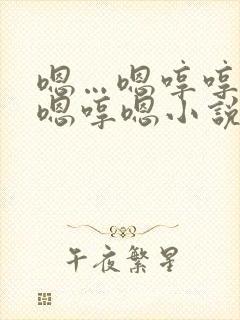 嗯…嗯哼哼
嗯哼嗯小說
午夜繁星